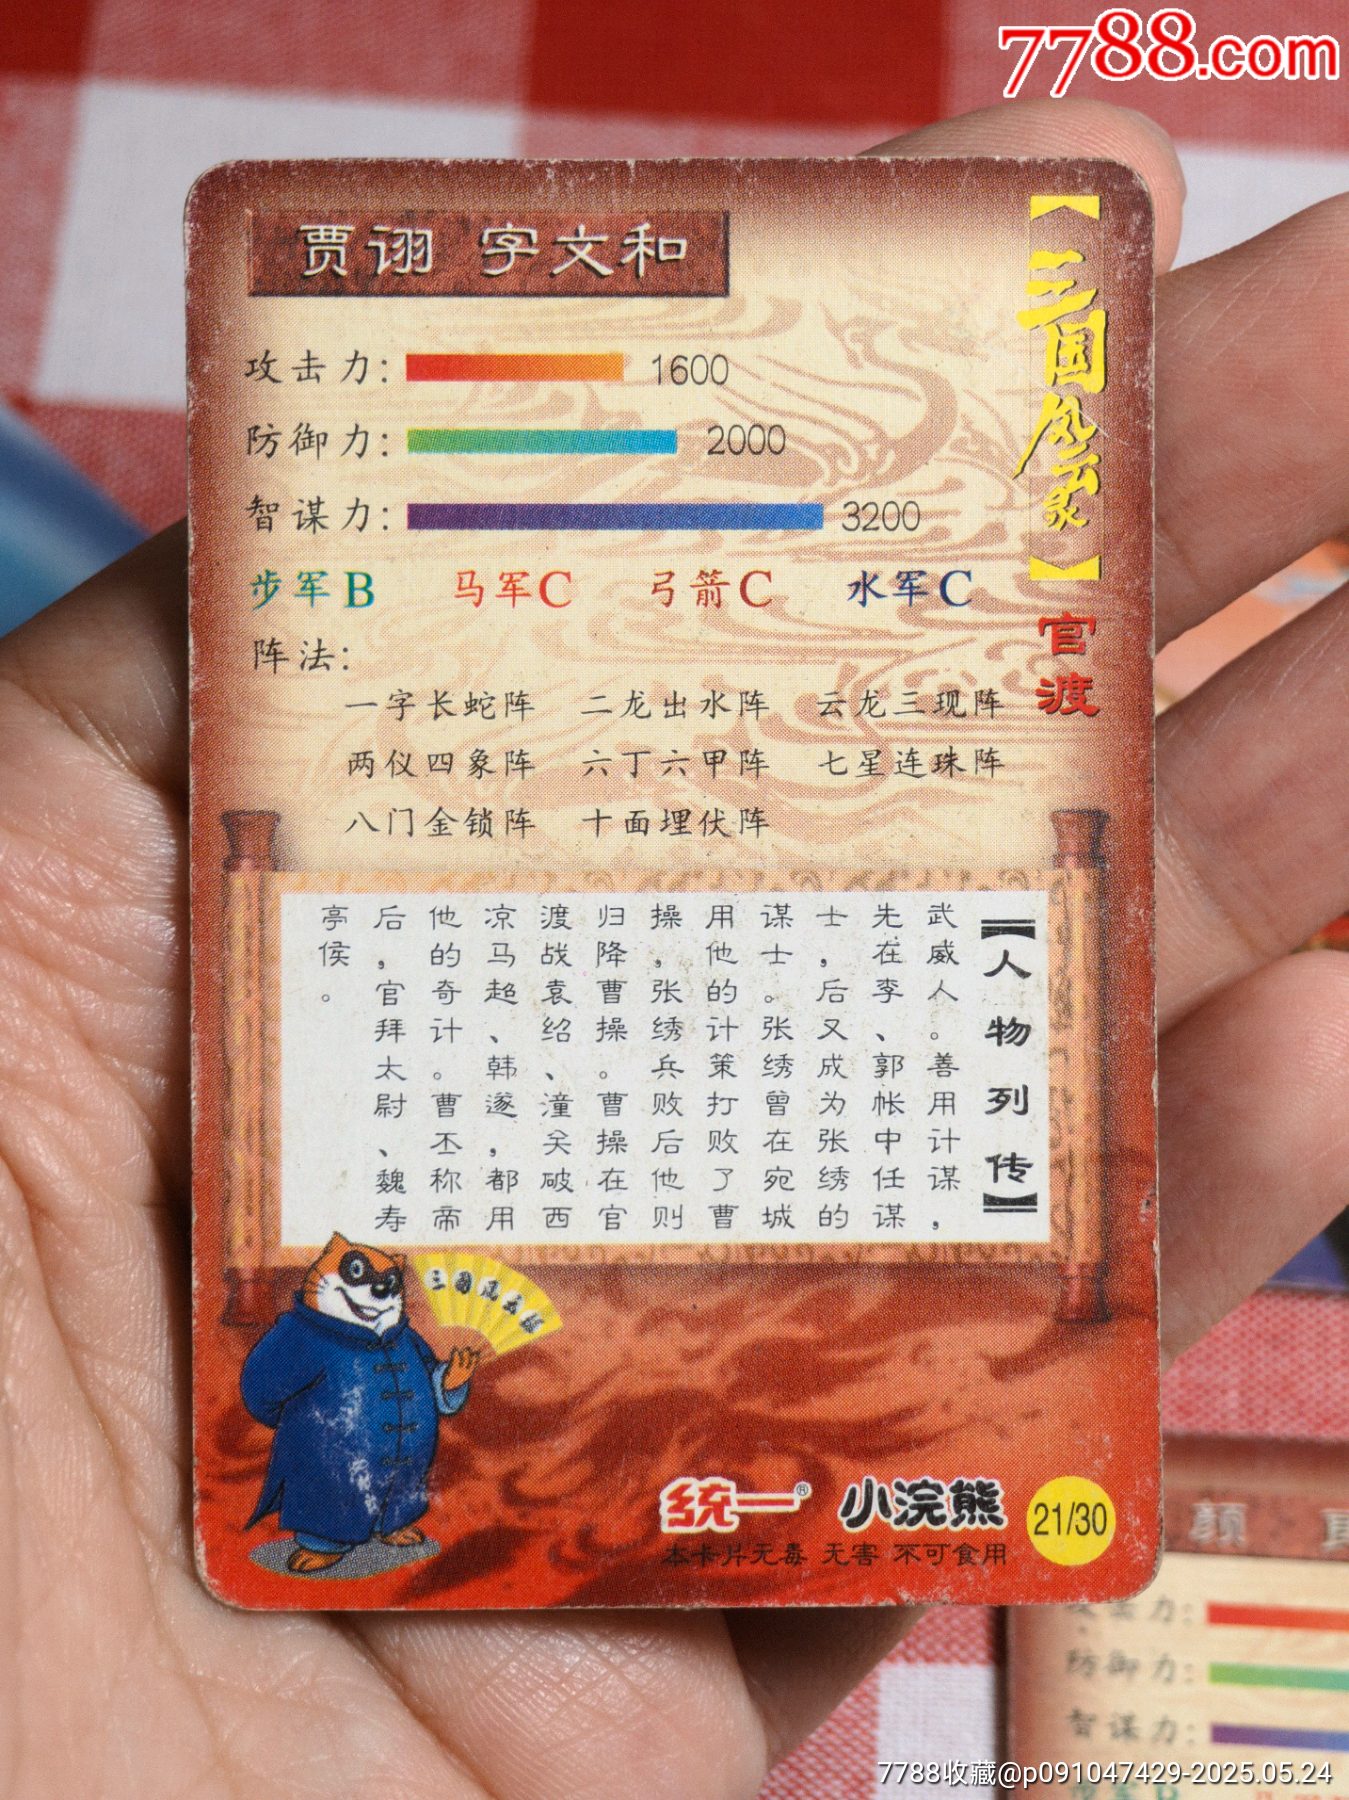 7788.com
贾诩 字文和
【三国风云录】官渡
攻击力: 1600
防御力: 2000
智谋力: 3200
步军B 马军C 弓箭C 水军C
阵法:
一字长蛇阵 二龙出水阵 云龙三现阵
两仪四象阵 六丁六甲阵 七星连珠阵
八门金锁阵 十面埋伏阵
【人物列传】
武威人。善用计谋，
先在李、郭帐中任谋
士，后又成为张绣的
谋士。张绣曾在宛城
用他的计策打败了曹
操，张绣兵败后他则
归降曹操。曹操在官
渡战袁绍、潼关破西
凉马超、韩遂，都用
他的奇计。曹丕称帝
后，官拜太尉、魏寿
亭侯。
三国风云录
统一® 小浣熊 21/30
本卡片无毒 无害 不可食用
颜
攻击力:
防御力:
智谋力:
7788收藏@p091047429-2025.05.24